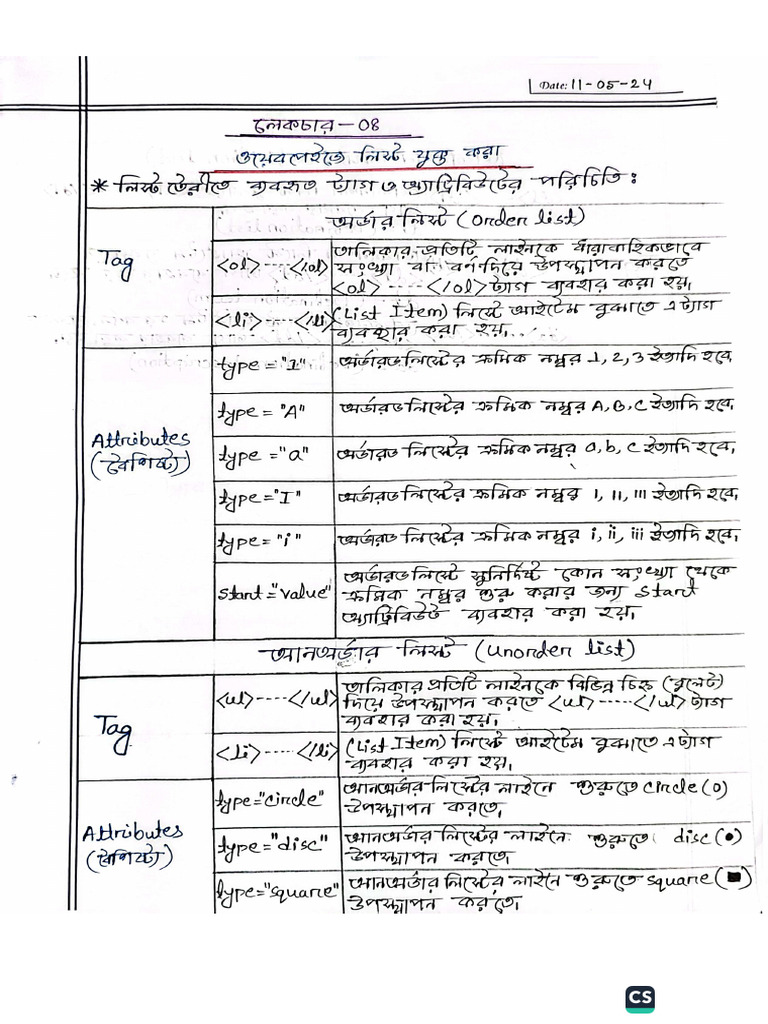 Date: 11-05-24
লেকচার-08
ওয়েবপেইজে লিস্ট যুক্ত করা
* লিস্ট তৈরীতে ব্যবহৃত ট্যাগ ও অ্যাট্রিবিউটের পরিচিতি:
অর্ডার লিস্ট (Order list)
Tag
<ol>----</ol>
তালিকার প্রতিটি লাইনকে ধারাবাহিকভাবে
সংখ্যা বা বর্ণ দিয়ে উপস্থাপন করতে
<ol>----</ol> ট্যাগ ব্যবহার করা হয়।
<li>----</li>
(List Item) লিস্ট আইটেম বুঝাতে এ ট্যাগ
ব্যবহার করা হয়।
Attributes
(বৈশিষ্ট্য)
type = "1"
অর্ডারডলিস্টের ক্রমিক নম্বর 1, 2, 3 ইত্যাদি হবে।
type = "A"
অর্ডারডলিস্টের ক্রমিক নম্বর A, B, C ইত্যাদি হবে।
type = "a"
অর্ডারডলিস্টের ক্রমিক নম্বর a, b, c ইত্যাদি হবে।
type = "I"
অর্ডারডলিস্টের ক্রমিক নম্বর I, II, III ইত্যাদি হবে।
type = "i"
অর্ডারডলিস্টের ক্রমিক নম্বর i, ii, iii ইত্যাদি হবে।
start="value"
অর্ডারডলিস্টে সুনির্দিষ্ট কোন সংখ্যা থেকে
ক্রমিক নম্বর শুরু করার জন্য start
অ্যাট্রিবিউট ব্যবহার করা হয়।
আনঅর্ডার লিস্ট (Unorder list)
Tag
<ul>----</ul>
তালিকার প্রতিটি লাইনকে বিভিন্ন চিহ্ন (বুলেট)
দিয়ে উপস্থাপন করতে <ul>-----</ul> ট্যাগ
ব্যবহার করা হয়।
<li>----</li>
(List Item) লিস্ট আইটেম বুঝাতে এ ট্যাগ
ব্যবহার করা হয়।
Attributes
(বৈশিষ্ট্য)
type="circle"
আনঅর্ডার লিস্টের লাইনে শুরুতে circle (০)
উপস্থাপন করতে।
type="disc"
আনঅর্ডার লিস্টের লাইনে শুরুতে disc (●)
উপস্থাপন করতে।
type="square"
আনঅর্ডার লিস্টের লাইনে শুরুতে square (■)
উপস্থাপন করতে।
CS